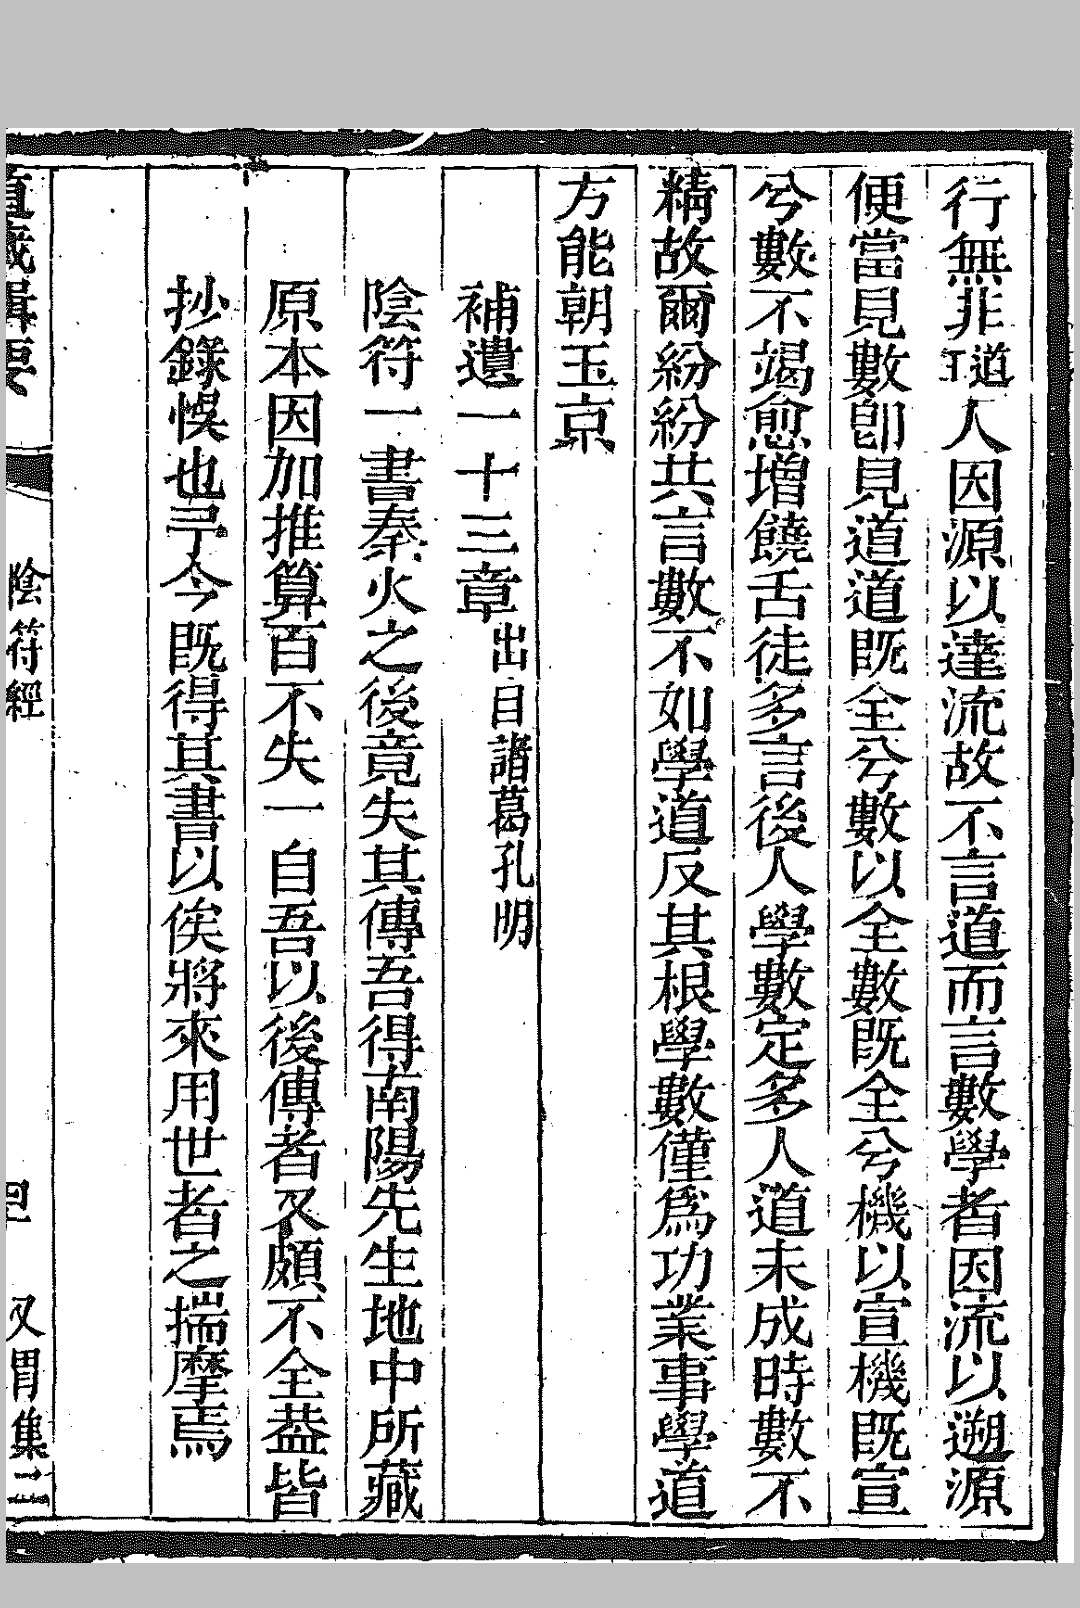 行無非道王人因源以達流故不言道而言數學者因流以遡源
便當見數卽見道道既全兮數以全數既全兮機以宣機既宣
兮數不竭愈增饒舌徒多言後人學數定多人道未成時數不
精故爾紛紛共言數不如學道反其根學數僅爲功業事學道
方能朝玉京
補遺一十三章出自諸葛孔明
陰符一書秦火之後竟失其傳吾得南陽先生地中所藏
原本因加推算百不失一自吾以後傳者又頗不全葢皆
抄錄悞也予今既得其書以俟將來用世者之揣摩焉
道藏輯要 陰符經 又胃集二